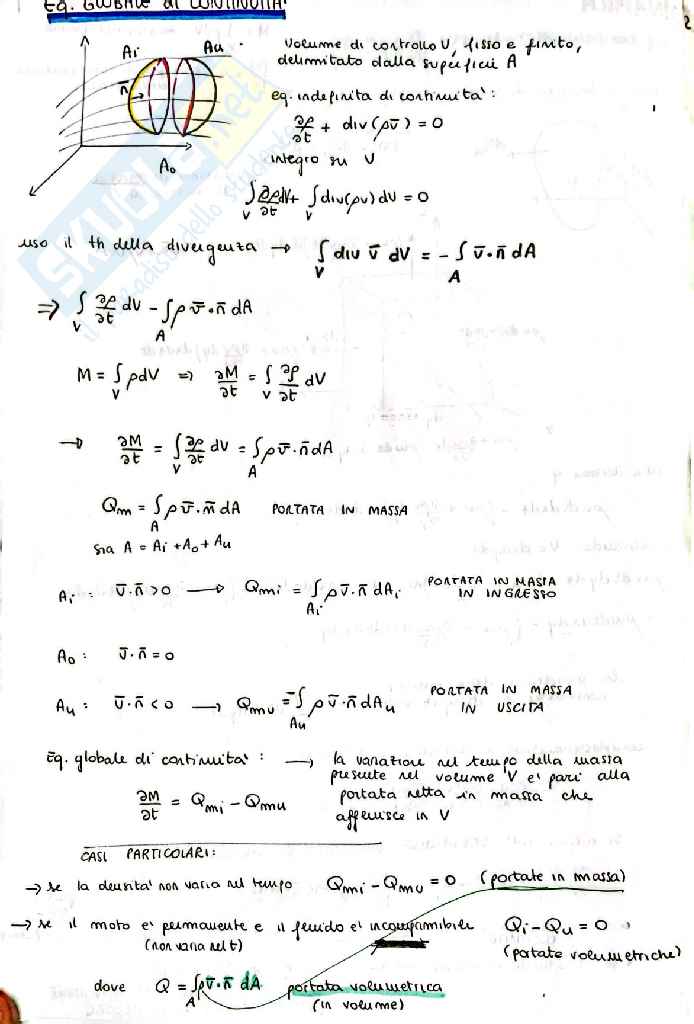 EQ. GLOBALE di CONTINUITA'
2
Ai
Au
n̄
Ao
volume di controllo V, fisso e finito,
delimitato dalla superficii A
eq. indefinita di continuita':
∂ρ/∂t + div(ρv̄) = 0
integro su V
∫_V ∂ρ/∂t dV + ∫_V div(ρv) dV = 0
uso il th della divergenza → ∫_V div v̄ dV = - ∫_A v̄·n̄ dA
⇒ ∫_V ∂ρ/∂t dV - ∫_A ρ v̄·n̄ dA
M = ∫_V ρdV ⇒ ∂M/∂t = ∫_V ∂ρ/∂t dV
→ ∂M/∂t = ∫_V ∂ρ/∂t dV = ∫_A ρ v̄·n̄ dA
Qm = ∫_A ρ v̄·n̄ dA PORTATA IN MASSA
sia A = Ai + Ao + Au
Ai : v̄·n̄ > 0 → Qmi = ∫_Ai ρ v̄·n̄ dAi PORTATA IN MASSA
IN INGRESSO
Ao : v̄·n̄ = 0
Au : v̄·n̄ < 0 → Qmu = -∫_Au ρ v̄·n̄ dAu PORTATA IN MASSA
IN USCITA
Eq. globale di continuita' : → la variazione nel tempo della massa
presente nel volume V e' pari alla
∂M/∂t = Qmi - Qmu portata netta in massa che
affluisce in V
CASI PARTICOLARI:
→ se la densita' non varia nel tempo Qmi - Qmu = 0 (portate in massa)
→ se il moto e' permanente e il fluido e' incomprimibile Qi - Qu = 0
(non varia nel t) (portate volumetriche)
dove Q = ∫_A ρv̄·n̄ dA portata volumetrica
(in volume)
SKUOLA.net
il paradiso dello studente